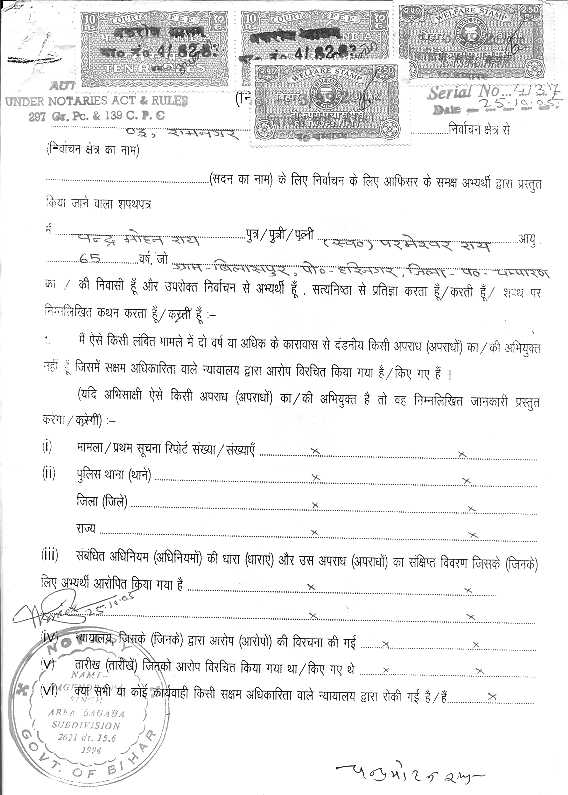 COURT FEE
COURT FEE
WELFARE STAMP
WELFARE STAMP
UNDER NOTARIES ACT & RULES
297 Gr. Pc. & 139 C. P. C
Serial No.
Date 25.10.05
रामनगर निर्वाचन क्षेत्र से
(निर्वाचन क्षेत्र का नाम)
(सदन का नाम) के लिए निर्वाचन के लिए आफिसर के समक्ष अभ्यर्थी द्वारा प्रस्तुत
किया जाने वाला शपथपत्र
मैं चन्द्र मोहन राय पुत्र/पुत्री/पत्नी (स्व०) परमेश्वर राय आयु
65 वर्ष, जो ग्राम-बिलासपुर, पो०-हरिनगर, जिला-प० चम्पारण
का / की निवासी हूँ और उपरोक्त निर्वाचन से अभ्यर्थी हूँ, सत्यनिष्ठा से प्रतिज्ञा करता हूँ/करती हूँ/ शपथ पर
निम्नलिखित कथन करता हूँ/करती हूँ :-
मैं ऐसे किसी लंबित मामले में दो वर्ष या अधिक के कारावास से दंडनीय किसी अपराध (अपराधों) का/की अभियुक्त
नहीं हूँ जिसमें सक्षम अधिकारिता वाले न्यायालय द्वारा आरोप विरचित किया गया है/किए गए हैं।
(यदि अभिसाक्षी ऐसे किसी अपराध (अपराधों) का/की अभियुक्त है तो वह निम्नलिखित जानकारी प्रस्तुत
करेगा/करेगी) :-
(i) मामला/प्रथम सूचना रिपोर्ट संख्या/संख्याएँ × ×
(ii) पुलिस थाना (थाने) × ×
जिला (जिले) × ×
राज्य × ×
(iii) संबंधित अधिनियम (अधिनियमों) की धारा (धाराएं) और उस अपराध (अपराधों) का संक्षिप्त विवरण जिसके (जिनके)
लिए अभ्यर्थी आरोपित किया गया है × ×
× ×
25.10.05
(iv) न्यायालय, जिसके (जिनके) द्वारा आरोप (आरोपों) की विरचना की गई × ×
(v) तारीख (तारीखें) जिनको आरोप विरचित किया गया था/किए गए थे × ×
(vi) क्या सभी या कोई कार्यवाही किसी सक्षम अधिकारिता वाले न्यायालय द्वारा रोकी गई है/हैं ×
NOTARY
AREA BAGAHA
SUBDIVISION
GOVT. OF BIHAR
चन्द्र मोहन राय